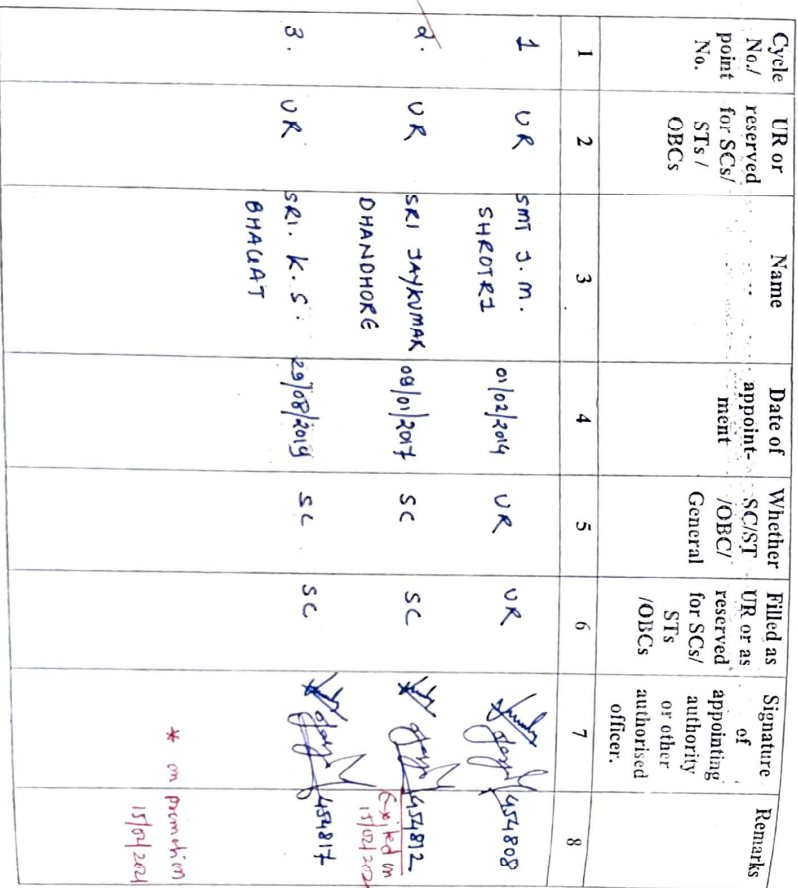 Cycle No./ point No.
UR or reserved for SCs/ STs / OBCs
Name
Date of appoint- ment
Whether SC/ST /OBC/ General
Filled as UR or as reserved for SCs/ STs /OBCs
Signature of appointing authority or other authorised officer.
Remarks
1 2 3 4 5 6 7 8
1 UR SMT J. M. 01/02/2014 UR UR 454808
SHROTRI
2. UR SRI JAYKUMAR 09/01/2017 SC SC 454812
DHANDHORE
Exited on
15/02/202
3. UR SRI. K. S. 29/08/2019 SC SC 454817
BHAGAT
* on promotion
15/02/2021